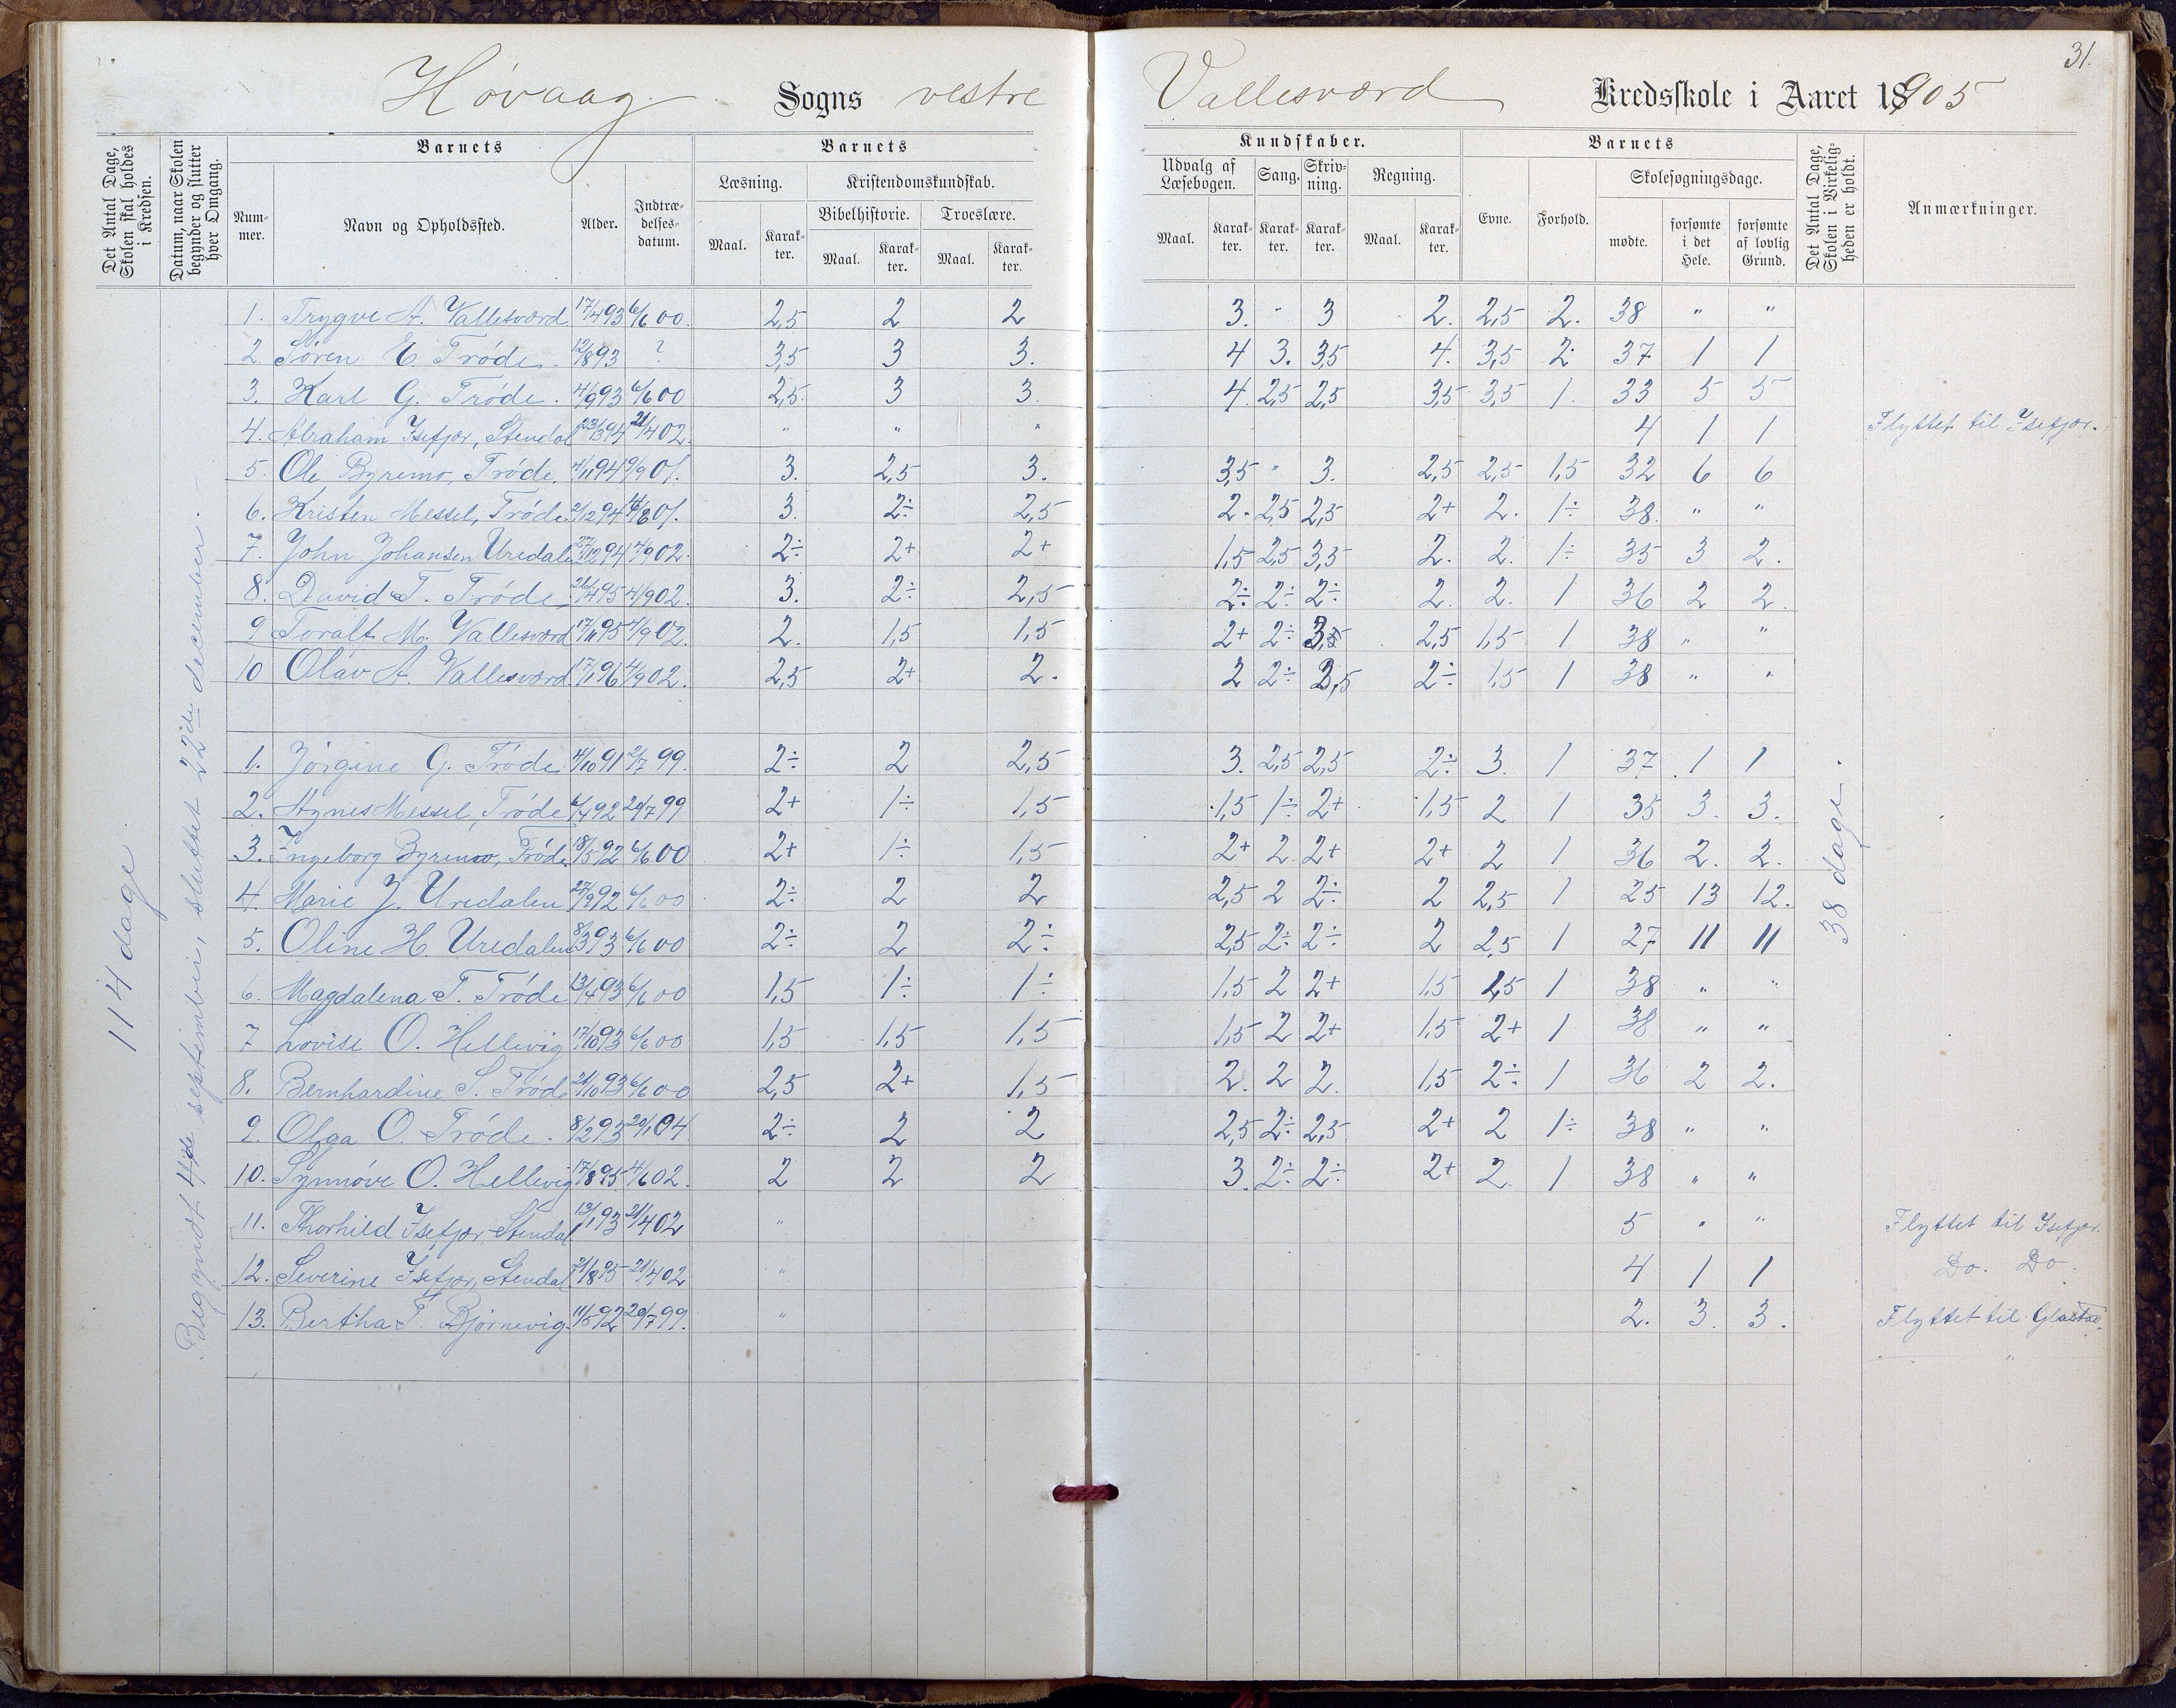 31.
Høvaag Sogns vestre Vallesværd Kredsskole i Aaret 18905
Det Antal Dage, Skolen skal holdes i Kredsen.
Datum, naar Skolen begynder og slutter hver Omgang.
Barnets
Barnets
Kundskaber.
Barnets
Det Antal Dage, Skolen i Virkeligheden er holdt.
Anmærkninger.
Nummer. Navn og Opholdssted. Alder. Indtrædelsesdatum.
Læsning. Kristendomskundskab. Udvalg af Læsebogen. Sang. Skrivning. Regning. Evne. Forhold. Skolesøgningsdage.
Bibelhistorie. Troeslære.
Maal. Karakter. Maal. Karakter. Maal. Karakter. Maal. Karakter. Karakter. Karakter. Maal. Karakter. mødte. forsømte i det Hele. forsømte af lovlig Grund.
114 dage
Begyndt 4de september, sluttet 22de december.
38 dage.
1. Trygve A. Vallesværd 17/4 93 6/6 00. 2,5 2 2 3. " 3 2. 2,5 2. 38 " "
2 Søren E. Trøde. 12/8 93 ? 3,5 3 3. 4 3. 3,5 4. 3,5 2. 37 1 1
3. Karl G. Trøde. 4/9 93 6/6 00 2,5. 3 3. 4. 2,5 2,5 3,5 3,5 1. 33 5 5
4. Abraham Isefjær, Stendal 23/3 94 21/4 02. " " " 4 1 1 Flyttet til Isefjær.
5. Ole Byremo, Trøde. 4/11 94 9/9 01. 3. 2,5 3. 3,5 " 3. 2,5 2,5 1,5 32 6 6
6. Kristen Messel, Trøde 2/12 94 4/8 01. 3. 2÷ 2,5 2. 2,5 2,5 2+ 2. 1÷ 38. " "
7. John Johansen Uredalen 27/12 94 4/9 02. 2÷ 2+ 2+ 1,5 2,5 3,5 2. 2. 1÷ 35 3 2.
8. David T. Trøde 26/4 95 4/9 02. 3. 2÷ 2,5 2÷ 2÷ 2÷ 2. 2. 1 36 2 2.
9 Toralf M. Vallesværd 17/11 95 4/9 02. 2. 1,5 1,5 2+ 2÷ 3,5 2,5 1,5 1 38 " "
10 Olav A. Vallesværd 17/1 96 4/9 02. 2,5 2+ 2. 2 2÷ 3,5 2÷ 1,5 1 38 " "
1. Jørgine G. Trøde 4/10 91 2/7 99. 2÷ 2 2,5 3. 2,5 2,5 2÷ 3. 1 37. 1 1
2. Agnes Messel, Trøde 6/4 92 20/7 99 2+ 1÷ 1,5 1,5 1÷ 2+ 1,5 2 1 35 3. 3.
3. Ingeborg Byremo, Trøde 18/5 92 6/6 00 2+ 1÷ 1,5 2+ 2. 2+ 2+ 2 1 36 2. 2.
4. Marie J. Uredalen 27/9 92 6/6 00 2÷ 2 2 2,5 2 2÷ 2 2,5 1 25 13 12.
5. Oline H. Uredalen 8/3 93 6/6 00 2÷ 2 2÷ 2,5 2÷ 2÷ 2 2,5 1 27 11 11
6. Magdalena T. Trøde 13/4 93 6/6 00 1,5 1÷ 1÷ 1,5 2 2+ 1,5 1,5 1 38 " "
7 Lovise O. Hellevig 17/10 93 6/6 00 1,5 1,5 1,5 1,5 2 2+ 1,5 2+ 1 38 " "
8. Bernhardine S. Trøde 21/10 93 6/6 00 2,5 2+ 1,5 2. 2 2. 1,5 2÷ 1 36 2 2.
9. Olga O. Trøde. 8/2 93 20/1 04 2÷ 2 2 2,5 2÷ 2,5 2+ 2 1÷ 38 " "
10. Synnøve O. Hellevig 17/8 95 4/6 02. 2 2 2 3. 2÷ 2÷ 2+ 2. 1 38 " "
11. Thorhild Isefjær, Stendal 13/1 93 21/4 02 " 5 " " Flyttet til Isefjær.
12. Severine Isefjær, Stendal 21/8 95 21/4 02 " 4 1 1 Do. Do.
13. Bertha T. Bjørnevig. 11/5 92 20/7 99. " 2. 3. 3. Flyttet til Glastad.